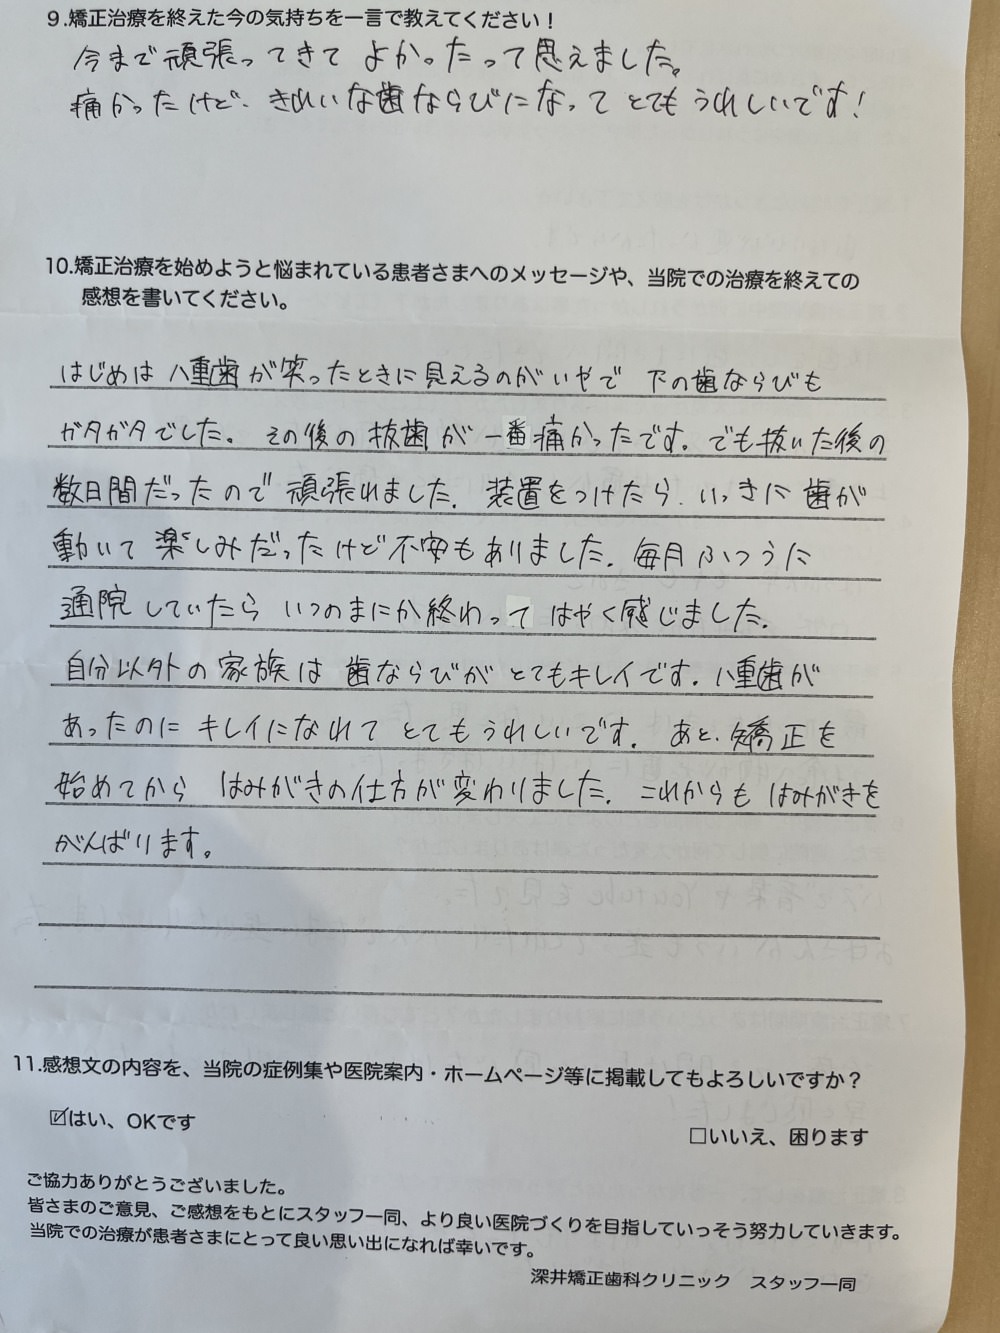 9.矯正治療を終えた今の気持ちを一言で教えてください！
今まで頑張ってきて よかったって思えました。
痛かったけど、きれいな歯ならびになって とても うれしいです！
10.矯正治療を始めようと悩まれている患者さまへのメッセージや、当院での治療を終えての
感想を書いてください。
はじめは 八重歯が笑ったときに見えるのがいやで 下の歯ならびも
ガタガタでした。その後の 抜歯が 一番痛かったです。でも抜いた後の
数日間だったので 頑張れました。装置をつけたら、いっきに 歯が
動いて 楽しみだったけど不安もありました。毎月 ふつうに
通院していたら いつのまにか終わって はやく感じました。
自分以外の家族は 歯ならびが とてもキレイです。八重歯が
あったのに キレイになれて とてもうれしいです。あと、矯正を
始めてから はみがきの仕方が変わりました。これからも はみがきを
がんばります。
11.感想文の内容を、当院の症例集や医院案内・ホームページ等に掲載してもよろしいですか？
☑はい、OKです
□いいえ、困ります
ご協力ありがとうございました。
皆さまのご意見、ご感想をもとにスタッフ一同、より良い医院づくりを目指していっそう努力していきます。
当院での治療が患者さまにとって良い思い出になれば幸いです。
深井矯正歯科クリニック　スタッフ一同